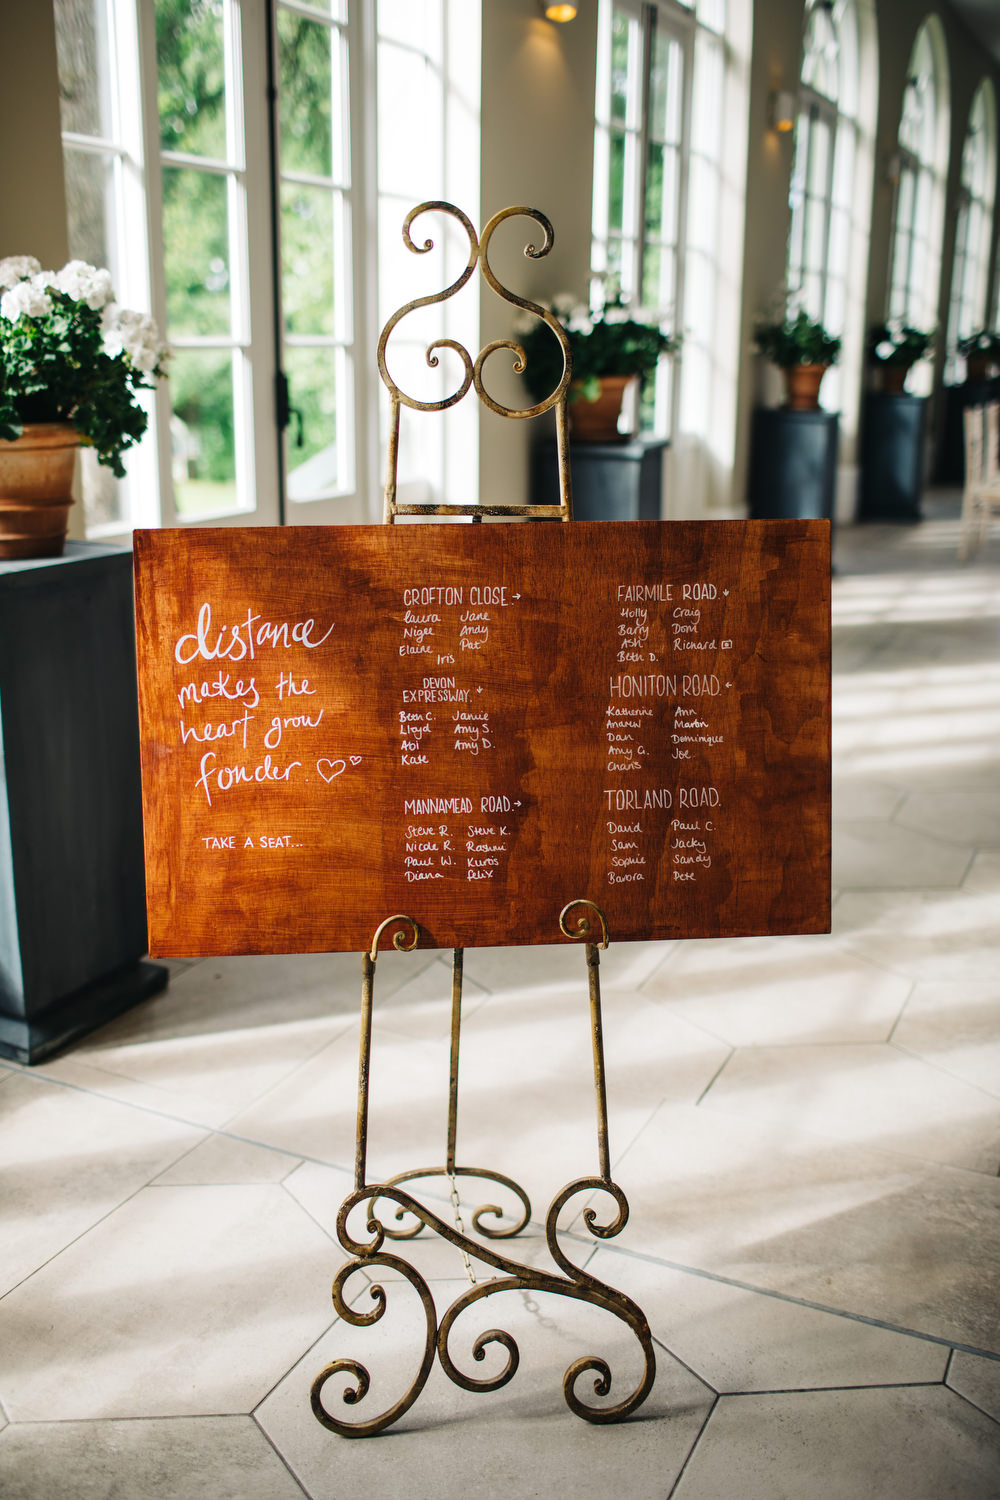 distance
makes the
heart grow
fonder.
TAKE A SEAT...
CROFTON CLOSE.→
Laura Jane
Nigel Andy
Elaine Pat
Iris
DEVON
EXPRESSWAY.↓
Beth C. Jamie
Lloyd Amy S.
Abi Amy D.
Kate
MANNAMEAD ROAD.→
Steve R. Steve K.
Nicole R. Rashmi
Paul W. Kurtis
Diana Felix
FAIRMILE ROAD.↓
Holly Craig
Barry Dom
Ash Richard
Beth D.
HONITON ROAD.←
Katherine Ann
Andrew Martin
Dan Dominique
Amy G. Joe
Charis
TORLAND ROAD.
David Paul C.
Sam Jacky
Sophie Sandy
Barbra Pete